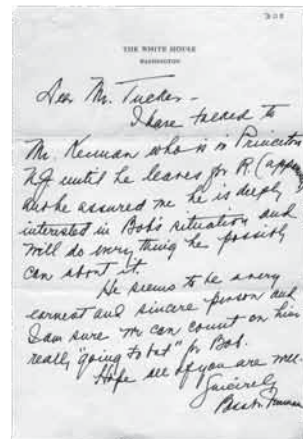 THE WHITE HOUSE
WASHINGTON
Dear Mr. Tucker -
I have talked to
Mr. Kennan who is in Princeton
N.J. until he leaves for R.
and he assured me he is deeply
interested in Bob's situation and
will do everything he possibly
can about it.
He seems to be a very
earnest and sincere person and
I am sure we can count on him
really "going to bat" for Bob.
Hope all of you are well.
Sincerely
Bess W. Truman